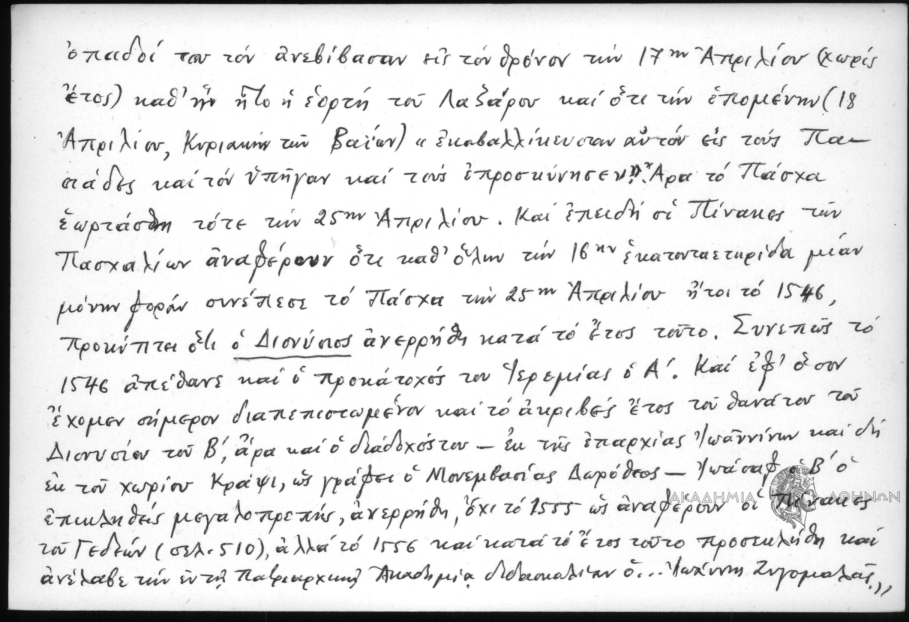 ὀπαδοί του τόν ἀνεβίβασαν εἰς τόν θρόνον τήν 17ην Ἀπριλίου (χωρίς
ἔτος) καθ' ἥν ἦτο ἡ ἑορτή τοῦ Λαζάρου καί ὅτι τήν ἑπομένην (18
Ἀπριλίου, Κυριακήν τῶν Βαΐων) « ἐκαβαλλίκευσαν αὐτόν εἰς τούς Πα-
σιάδες καί τόν ὑπῆγαν καί τούς ἐπροσκύνησεν». Ἄρα τό Πάσχα
ἑωρτάσθη τότε τήν 25ην Ἀπριλίου. Καί ἐπειδή οἱ Πίνακες τῶν
Πασχαλίων ἀναφέρουν ὅτι καθ' ὅλην τήν 16ην ἑκατονταετηρίδα μίαν
μόνην φοράν συνέπεσε τό Πάσχα τήν 25ην Ἀπριλίου ἤτοι τό 1546,
προκύπτει ὅτι ὁ Διονύσιος ἀνερρήθη κατά τό ἔτος τοῦτο. Συνεπῶς τό
1546 ἀπέθανε καί ὁ προκάτοχός του Ἱερεμίας ὁ Α'. Καί ἐφ' ὅσον
ἔχομεν σήμερον διαπεπιστωμένον καί τό ἀκριβές ἔτος τοῦ θανάτου τοῦ
Διονυσίου τοῦ Β', ἄρα καί ὁ διάδοχός του — ἐκ τῆς ἐπαρχίας Ἰωαννίνων καί δή
ἐκ τοῦ χωρίου Κράψι, ὡς γράφει ὁ Μονεμβασίας Δωρόθεος — Ἰωάσαφ ὁ Β' ὁ
ἐπικληθείς μεγαλοπρεπής, ἀνερρήθη, ὄχι τό 1555 ὡς ἀναφέρουν οἱ Πίνακες
τοῦ Γεδεών (σελ. 510), ἀλλά τό 1556 καί κατά τό ἔτος τοῦτο προσεκλήθη καί
ἀνέλαβε τήν ἐν τῇ Πατριαρχικῇ Ἀκαδημίᾳ διδασκαλίαν ὁ... Ἰωάννης Ζυγομαλᾶς,,
ΑΚΑΔΗΜΙΑ ΑΘΗΝΩΝ